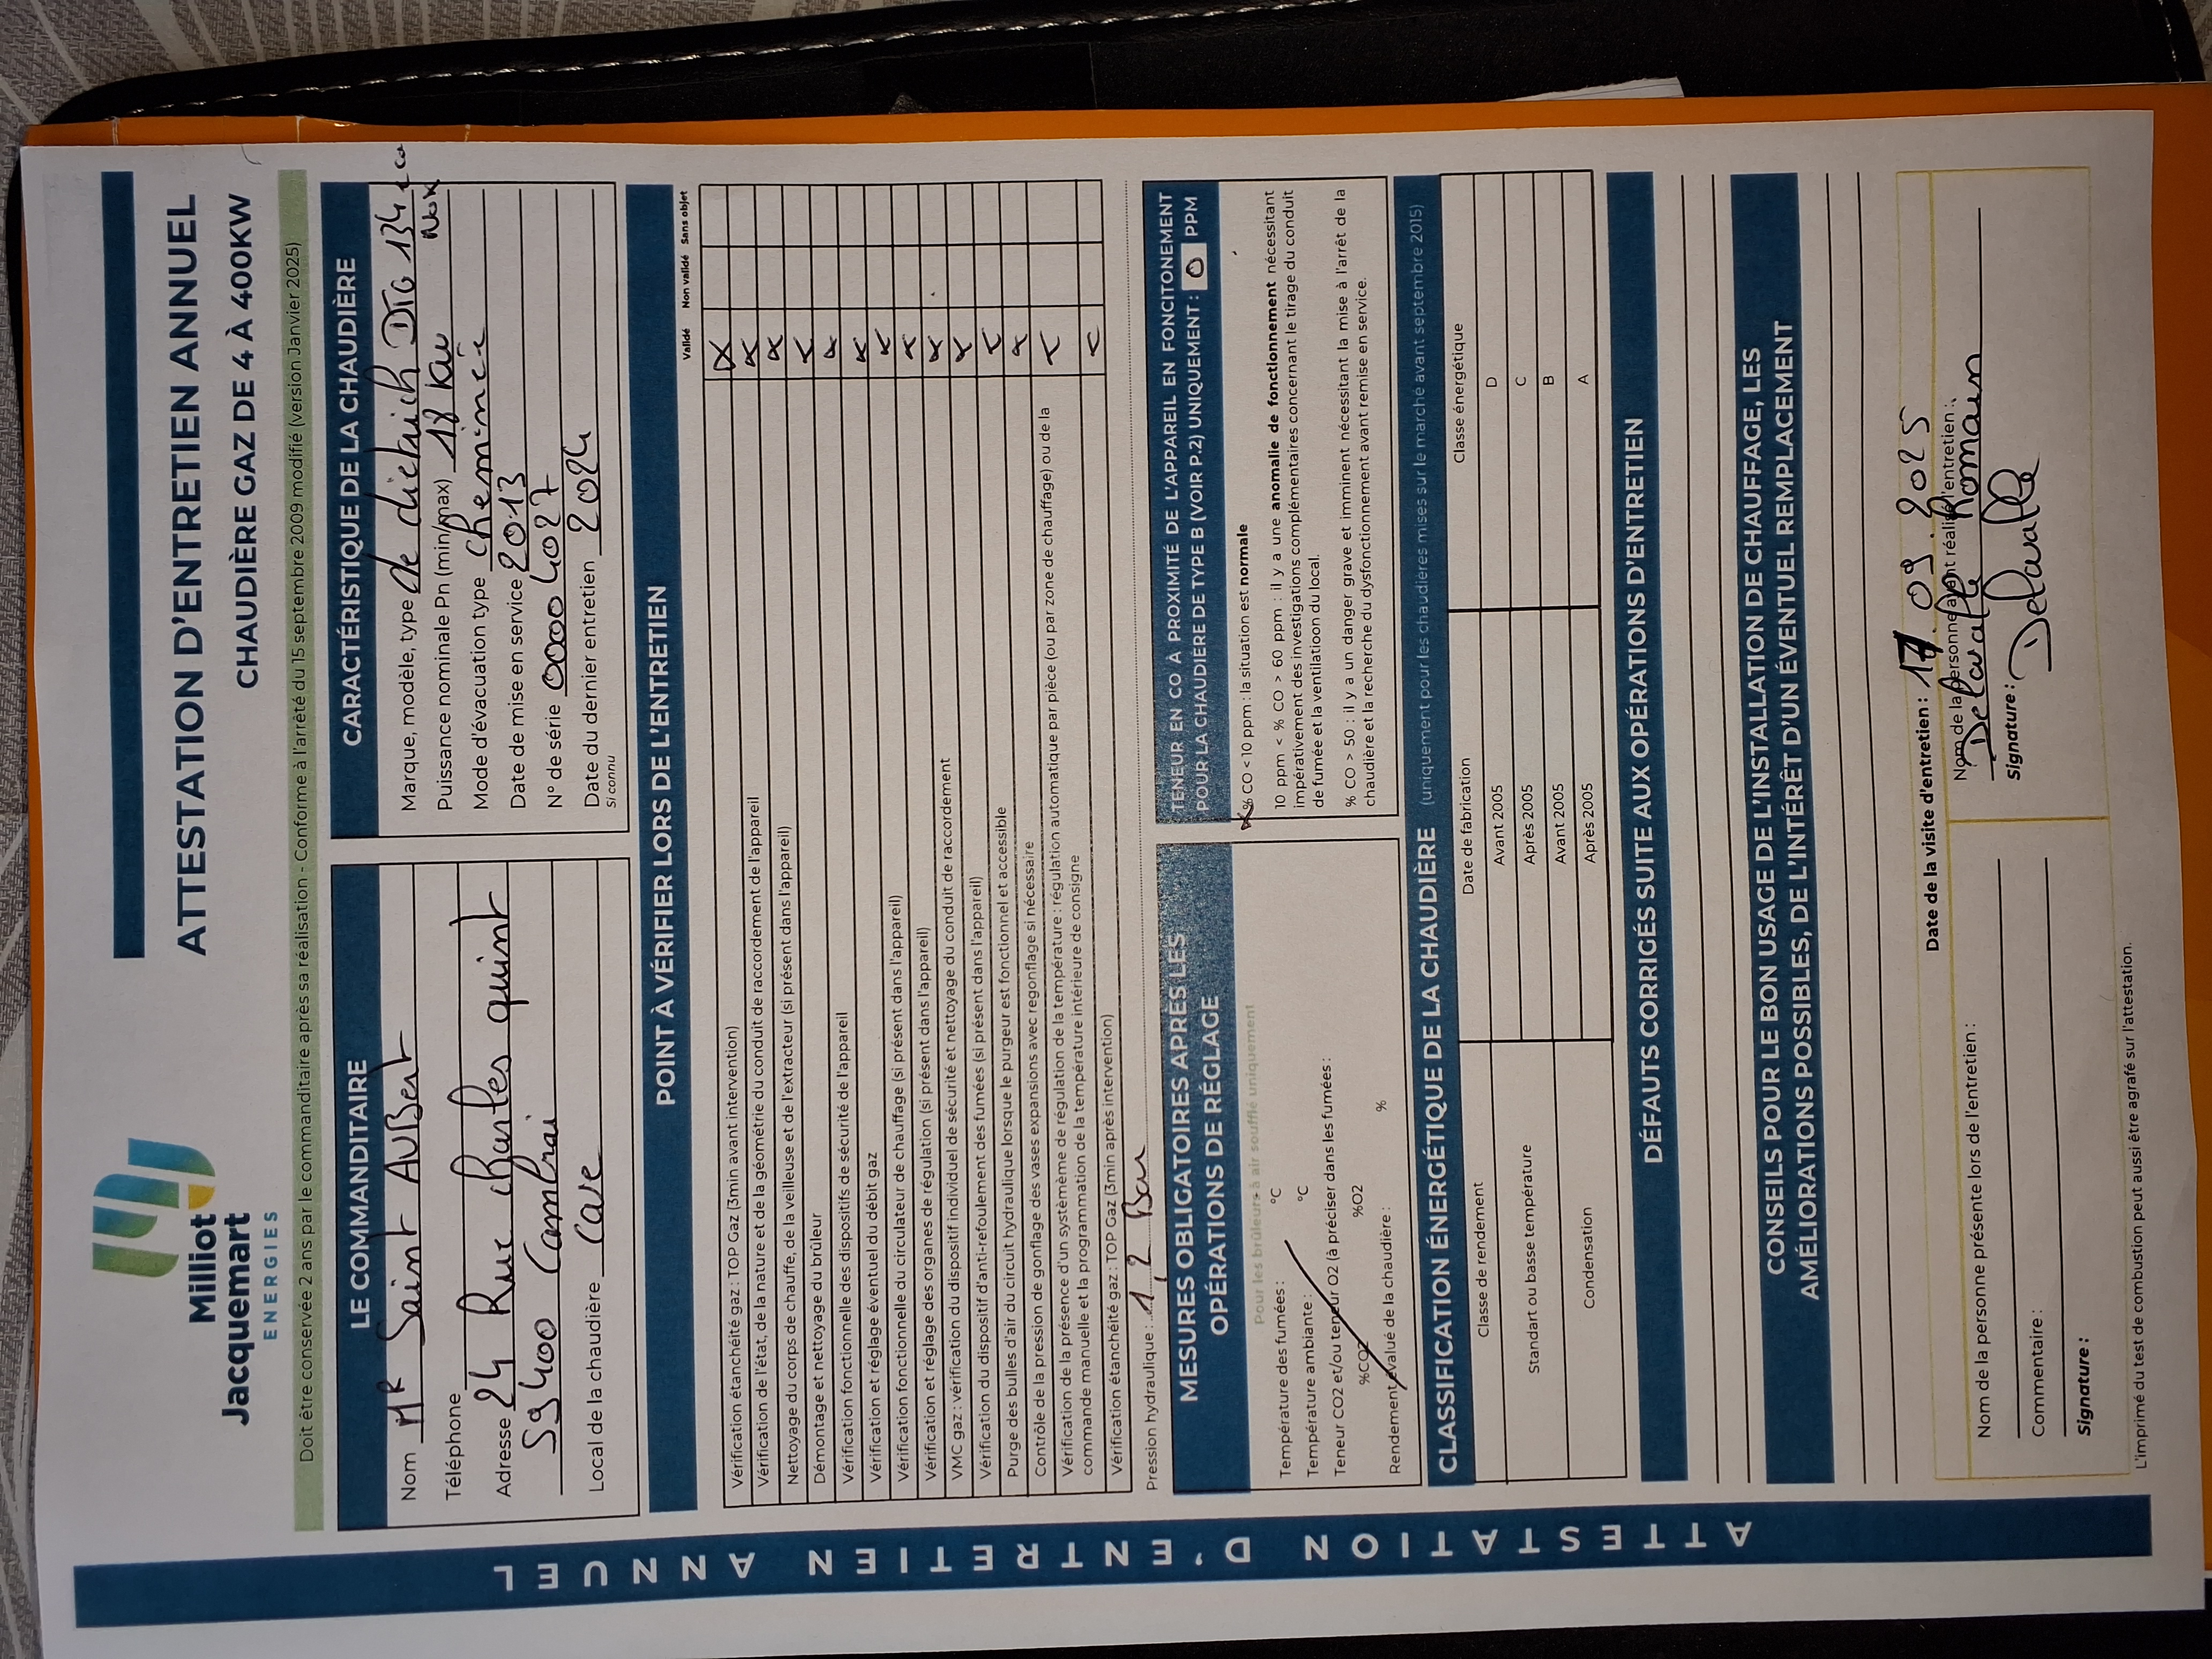 Milliot
Jacquemart
ENERGIES
ATTESTATION D'ENTRETIEN ANNUEL
CHAUDIÈRE GAZ DE 4 À 400KW
Doit être conservée 2 ans par le commanditaire après sa réalisation - Conforme à l'arrêté du 15 septembre 2009 modifié (version Janvier 2025)
LE COMMANDITAIRE
Nom MR Saint AUBert
Téléphone
Adresse 24 Rue charles quint
59400 Cambrai
Local de la chaudière Cave
CARACTÉRISTIQUE DE LA CHAUDIÈRE
Marque, modèle, type de dietrich DTG 134 eco
Nox
Puissance nominale Pn (min/max) 18 kw
Mode d'évacuation type cheminée
Date de mise en service 2013
N° de série 00004027
Date du dernier entretien 2024
Si connu
POINT À VÉRIFIER LORS DE L'ENTRETIEN
Validé Non validé Sans objet
Vérification étanchéité gaz : TOP Gaz (3min avant intervention) X
Vérification de l'état, de la nature et de la géométrie du conduit de raccordement de l'appareil X
Nettoyage du corps de chauffe, de la veilleuse et de l'extracteur (si présent dans l'appareil) X
Démontage et nettoyage du brûleur X
Vérification fonctionnelle des dispositifs de sécurité de l'appareil X
Vérification et réglage éventuel du débit gaz X
Vérification fonctionnelle du circulateur de chauffage (si présent dans l'appareil) X
Vérification et réglage des organes de régulation (si présent dans l'appareil) X
VMC gaz : vérification du dispositif individuel de sécurité et nettoyage du conduit de raccordement X
Vérification du dispositif d'anti-refoulement des fumées (si présent dans l'appareil) X
Purge des bulles d'air du circuit hydraulique lorsque le purgeur est fonctionnel et accessible X
Contrôle de la pression de gonflage des vases expansions avec regonflage si nécessaire X
Vérification de la présence d'un systèmème de régulation de la température : régulation automatique par pièce (ou par zone de chauffage) ou de la X
commande manuelle et la programmation de la température intérieure de consigne
Vérification étanchéité gaz : TOP Gaz (3min après intervention) X
Pression hydraulique : 1,2 Bar
MESURES OBLIGATOIRES APRÈS LES
OPÉRATIONS DE RÉGLAGE
Pour les brûleurs à air soufflé uniquement
Température des fumées : °C
Température ambiante : °C
Teneur CO2 et/ou teneur O2 (à préciser dans les fumées :
%CO2 %O2
Rendement évalué de la chaudière : %
TENEUR EN CO À PROXIMITÉ DE L'APPAREIL EN FONCITONEMENT
POUR LA CHAUDIÈRE DE TYPE B (VOIR P.2) UNIQUEMENT : 0 PPM
X % CO < 10 ppm : la situation est normale
10 ppm < % CO > 60 ppm : il y a une anomalie de fonctionnement nécessitant
impérativement des investigations complémentaires concernant le tirage du conduit
de fumée et la ventilatioon du local.
% CO > 50 : il y a un danger grave et imminent nécessitant la mise à l'arrêt de la
chaudière et la recherche du dysfonctionnement avant remise en service.
CLASSIFICATION ÉNERGÉTIQUE DE LA CHAUDIÈRE (uniquement pour les chaudières mises sur le marché avant septembre 2015)
Classe de rendement Date de fabrication Classe énergétique
Standart ou basse température Avant 2005 D
Après 2005 C
Condensation Avant 2005 B
Après 2005 A
DÉFAUTS CORRIGÉS SUITE AUX OPÉRATIONS D'ENTRETIEN
CONSEILS POUR LE BON USAGE DE L'INSTALLATION DE CHAUFFAGE, LES
AMÉLIORATIONS POSSIBLES, DE L'INTÉRÊT D'UN ÉVENTUEL REMPLACEMENT
Date de la visite d'entretien : 17.09.2025
Nom de la personne présente lors de l'entretien :
Commentaire :
Signature :
Nom de la personne ayant réalisé l'entretien :
Delavalle Romain
Signature : Delavalle
L'imprimé du test de combustion peut aussi être agrafé sur l'attestation.
ATTESTATION D'ENTRETIEN ANNUEL